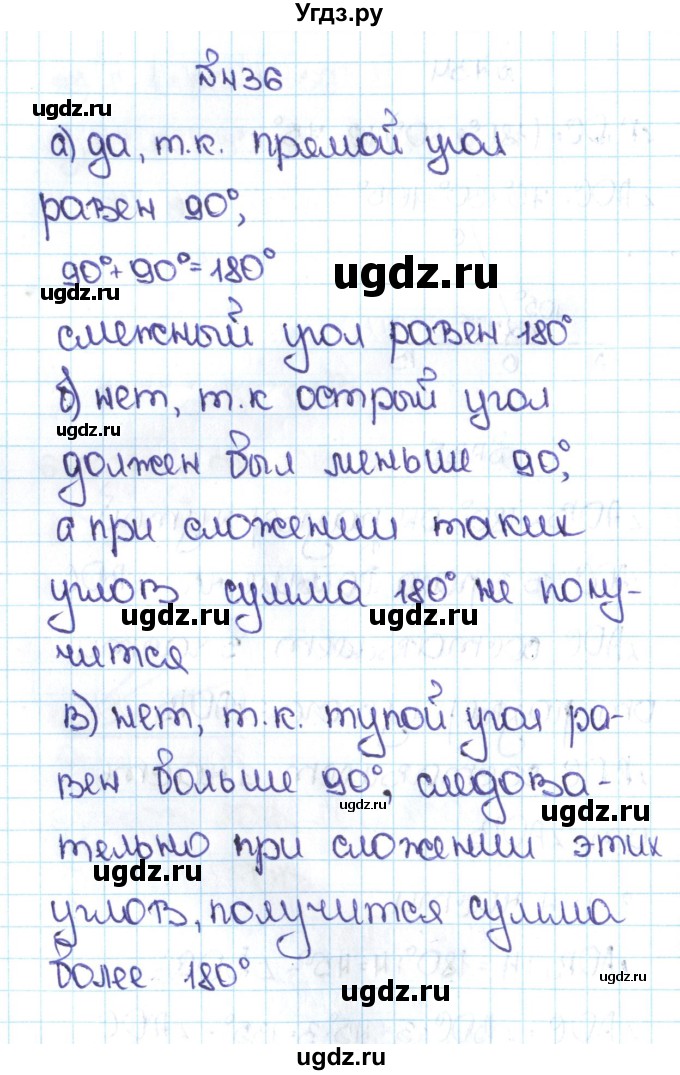 Угдз.ру
№436
ugdz.ru
а) да, т.к. прямой угол
равен 90°,
90°+90°=180°
ugdz.ru
ugdz.ru
смежный угол равен 180°
б) нет, т.к острый угол
ugdz.ru
должен был меньше 90°,
а при сложении таких
углов сумма 180° не полу-
ugdz.ru ugdz.ru
чится
в) нет, т.к. тупой угол ра-
вен больше 90°, следова-
ugdz.ru
ugdz.ru
тельно при сложении этих
ugdz.ru
углов, получится сумма
более 180°
ugdz.ru
ugdz.ru